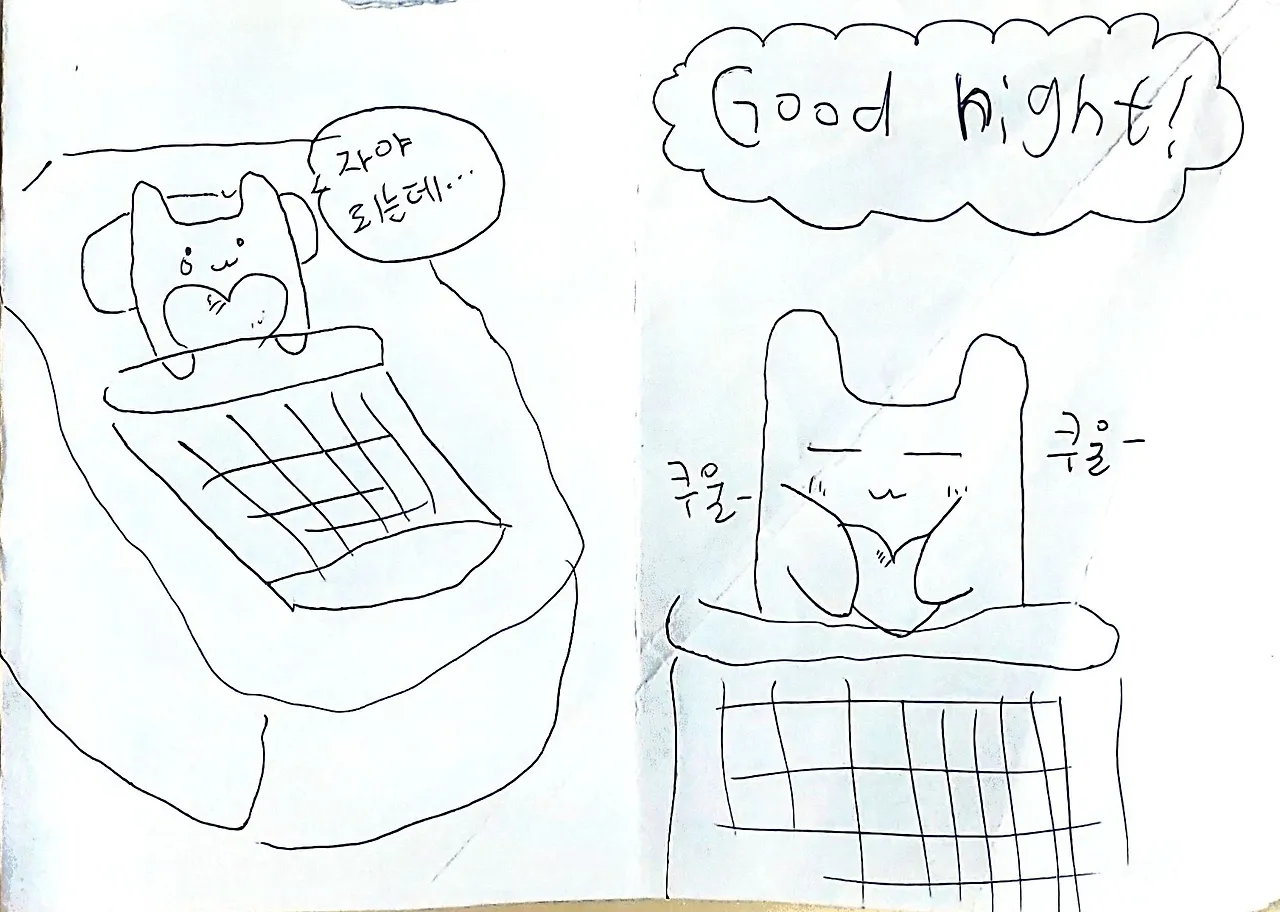 자야
되는데...
Good night!
쿠울-
쿠울-